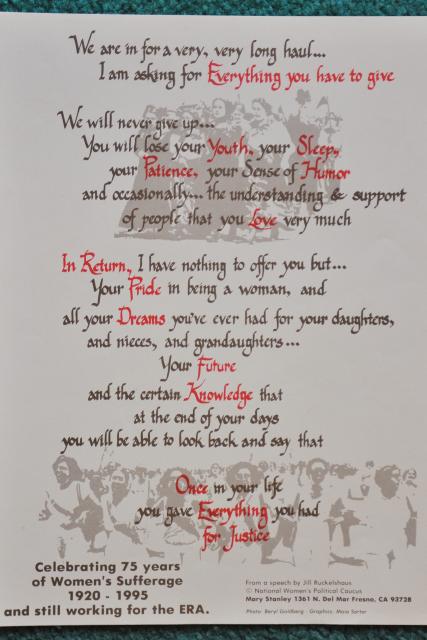 We are in for a very, very long haul...
I am asking for Everything you have to give
We will never give up...
You will lose your Youth, your Sleep,
your Patience, your Sense of Humor
and occasionally... the understanding & support
of people that you Love very much
In Return, I have nothing to offer you but...
Your Pride in being a woman, and
all your Dreams you've ever had for your daughters,
and nieces, and grandaughters...
Your Future
and the certain Knowledge that
at the end of your days
you will be able to look back and say that
Once in your life
you gave Everything you had
for Justice
Celebrating 75 years
of Women's Sufferage
1920 - 1995
and still working for the ERA.
From a speech by Jill Ruckelshaus
© National Women's Political Caucus
Mary Stanley 1361 N. Del Mar Fresno, CA 93728
Photo: Beryl Goldberg - Graphics: Maia Sortor